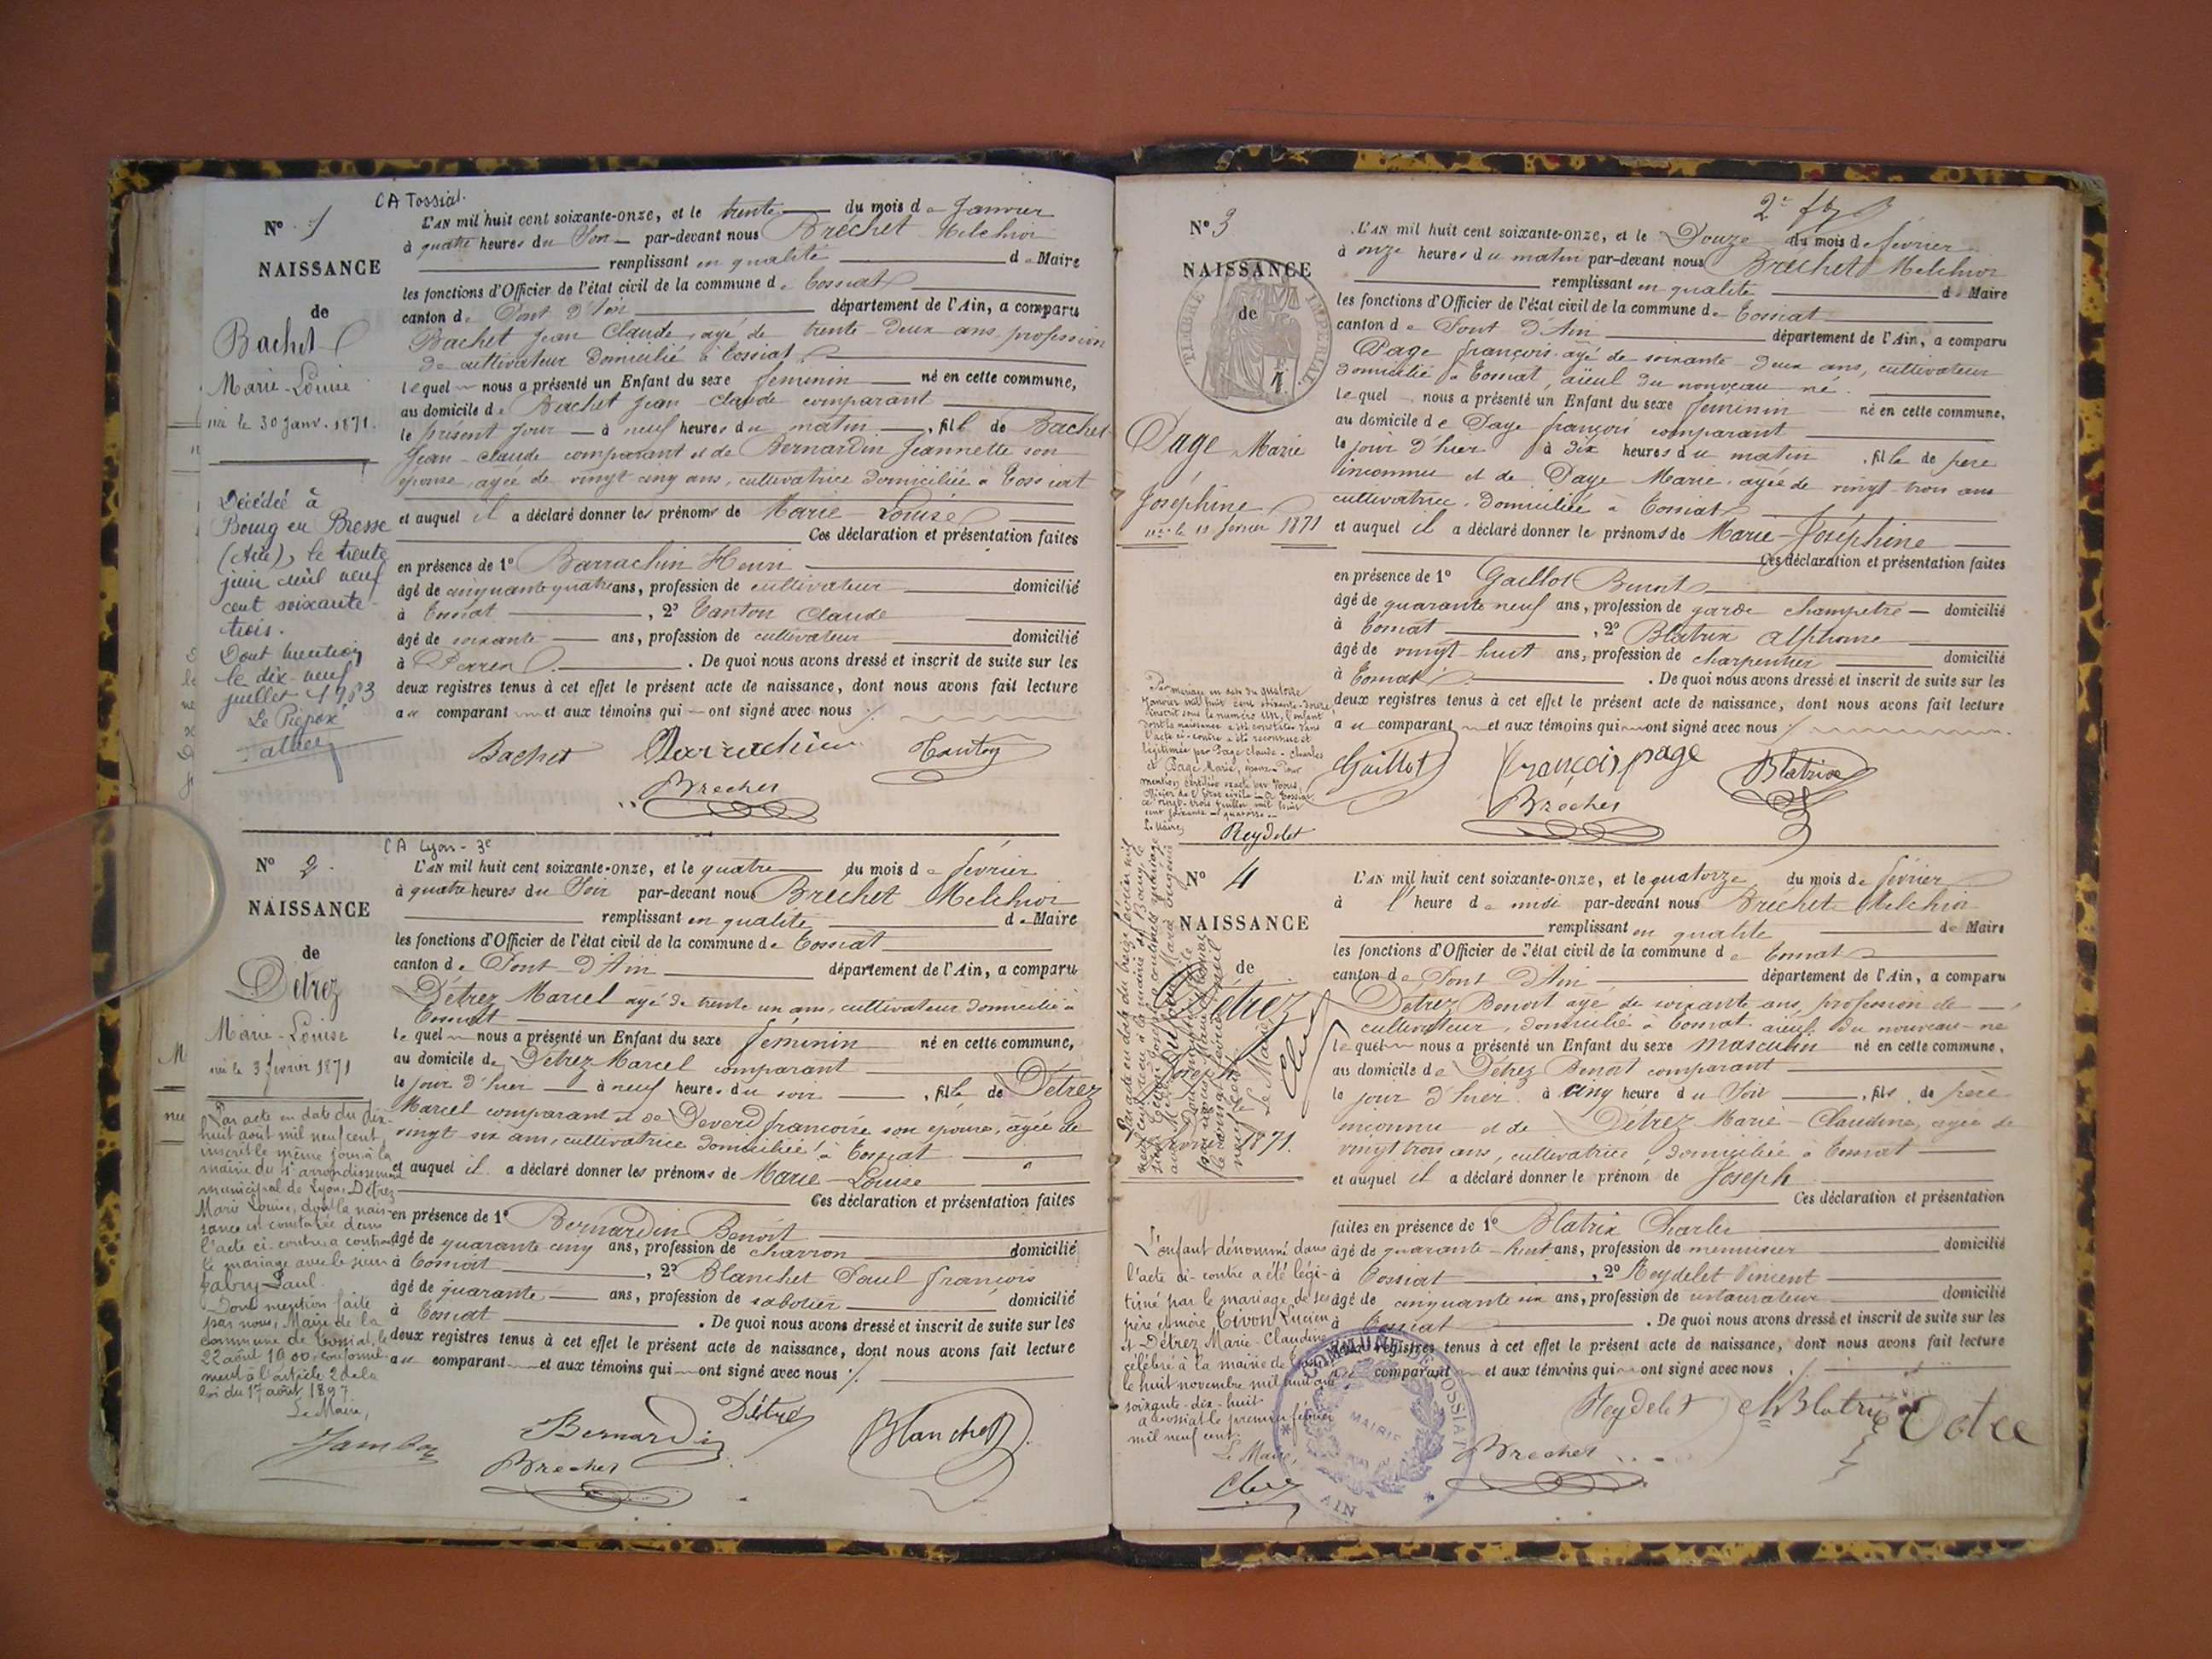 CA Tossiat.
N° 1
NAISSANCE
de
Bachet
Marie-Louise
née le 30 Janv. 1871.
Décédée à
Bourg en Bresse
(Ain), le trente
juin mil neuf
cent soixante-
trois.
Dont mention
le dix-neuf
juillet 1963
L'AN mil huit cent soixante-onze, et le trente du mois de Janvier
à quatre heures du Soir par-devant nous Bréchet Melchior
remplissant en qualité de Maire
les fonctions d'Officier de l'état civil de la commune de Tossiat
canton de Pont d'Ain département de l'Ain, a comparu
Bachet Jean Claude, agé de trente-deux ans, profession
de cultivateur domicilié à Tossiat
lequel nous a présenté un Enfant du sexe féminin né en cette commune,
au domicile de Bachet Jean-Claude comparant
le présent jour à neuf heures du matin, fille de Bachet
Jean-Claude comparant et de Bernardin Jeannette son
épouse, agée de vingt cinq ans, cultivatrice domiciliée à Tossiat
et auquel il a déclaré donner les prénoms de Marie-Louise
Ces déclaration et présentation faites
en présence de 1° Barrachin Henri
âgé de cinquante quatre ans, profession de cultivateur domicilié
à Tossiat, 2° Tanton Claude
âgé de soixante ans, profession de cultivateur domicilié
à . De quoi nous avons dressé et inscrit de suite sur les
deux registres tenus à cet effet le présent acte de naissance, dont nous avons fait lecture
au comparant et aux témoins qui ont signé avec nous
Bachet Barrachin Tanton
Brechet
CA Lyon-3e
N° 2.
NAISSANCE
de
Détrez
Marie-Louise
née le 3 février 1871
Par acte en date du dix-
huit août mil neuf cent,
inscrit le même jour à la
mairie du arrondissement
municipal de Lyon, Détrez
Marie Louise, dont la nais-
sance est constatée dans
l'acte ci-contre, a contracté
le mariage avec le sieur
Fabry Paul.
Dont mention faite
par nous, Maire de la
commune de Tossiat, le
22 août 1900, conformé-
ment à l'article 2 de la
loi du 17 août 1897.
Le Maire,
L'AN mil huit cent soixante-onze, et le quatre du mois de février
à quatre heures du Soir par-devant nous Bréchet Melchior
remplissant en qualité de Maire
les fonctions d'Officier de l'état civil de la commune de Tossiat
canton de Pont-d'Ain département de l'Ain, a comparu
Détrez Marcel agé de trente un ans, cultivateur domicilié à
Tossiat
lequel nous a présenté un Enfant du sexe féminin né en cette commune,
au domicile de Détrez Marcel comparant
le jour d'hier à neuf heures du soir, fille de Détrez
Marcel comparant et de françoise son épouse, agée de
vingt six ans, cultivatrice domiciliée à Tossiat
et auquel il a déclaré donner les prénoms de Marie-Louise
Ces déclaration et présentation faites
en présence de 1° Bernardin Benoît
âgé de quarante cinq ans, profession de charron domicilié
à Tossiat, 2° Blanchet Paul françois
âgé de quarante ans, profession de sabotier domicilié
à Tossiat. De quoi nous avons dressé et inscrit de suite sur les
deux registres tenus à cet effet le présent acte de naissance, dont nous avons fait lecture
au comparant et aux témoins qui ont signé avec nous
Bernardin Détré Blanchet
Brechet
N° 3
NAISSANCE
de
TIMBRE IMPERIAL
Page Marie
Joséphine
née le 11 février 1871
Par mariage en date du quatorze
janvier mil huit cent soixante-douze,
inscrit sous le numéro un, l'enfant
dont la naissance a été constatée dans
l'acte ci-contre a été reconnue et
légitimée par Page Claude-Charles
et Page Marie, époux. Pour
Le Maire,
Reydelet
L'AN mil huit cent soixante-onze, et le Douze du mois de février
à onze heures du matin par-devant nous Bréchet Melchior
remplissant en qualité de Maire
les fonctions d'Officier de l'état civil de la commune de Tossiat
canton de Pont d'Ain département de l'Ain, a comparu
Page françois agé de soixante-deux ans, cultivateur
domicilié à Tossiat, aïeul du nouveau-né.
lequel nous a présenté un Enfant du sexe féminin né en cette commune,
au domicile de Page françois comparant
le jour d'hier à dix heures du matin, fille de père
inconnu et de Page Marie, agée de vingt-trois ans
cultivatrice, domiciliée à Tossiat
et auquel il a déclaré donner les prénoms de Marie-Joséphine
Ces déclaration et présentation faites
en présence de 1° Gaillot Benoit
âgé de quarante neuf ans, profession de garde champêtre domicilié
à Tossiat, 2° Blatrix Alphonse
âgé de vingt-huit ans, profession de charpentier domicilié
à Tossiat. De quoi nous avons dressé et inscrit de suite sur les
deux registres tenus à cet effet le présent acte de naissance, dont nous avons fait lecture
au comparant et aux témoins qui ont signé avec nous
Gaillot françois page Blatrix
Brechet
N° 4
NAISSANCE
de
Détrez
1871.
L'enfant dénommé dans
l'acte ci-contre a été légi-
timé par le mariage de ses
père et mère, Tivon Lucien
et Détrez Marie-Claudine
célébré à la mairie de Tossiat
le huit novembre mil huit cent
soixante-dix-huit.
à Tossiat le premier février
mil neuf cent.
Le Maire,
L'AN mil huit cent soixante-onze, et le quatorze du mois de février
à l'heure de midi par-devant nous Bréchet Melchior
remplissant en qualité de Maire
les fonctions d'Officier de l'état civil de la commune de Tossiat
canton de Pont d'Ain département de l'Ain, a comparu
Détrez Benoit agé de soixante ans, profession de
cultivateur, domicilié à Tossiat aïeul du nouveau-né
lequel nous a présenté un Enfant du sexe masculin né en cette commune,
au domicile de Détrez Benoit comparant
le jour d'hier à cinq heure du Soir, fils de père
inconnu et de Détrez Marie-Claudine, agée de
vingt trois ans, cultivatrice, domiciliée à Tossiat
et auquel il a déclaré donner le prénom de Joseph
Ces déclaration et présentation
faites en présence de 1° Blatrix Charles
âgé de quarante-huit ans, profession de menuisier domicilié
à Tossiat, 2° Reydelet Vincent
âgé de cinquante six ans, profession de domicilié
à Tossiat. De quoi nous avons dressé et inscrit de suite sur les
deux registres tenus à cet effet le présent acte de naissance, dont nous avons fait lecture
comparant et aux témoins qui ont signé avec nous
COMMUNE DE TOSSIAT
MAIRIE
AIN
Reydelet Ch Blatrix Detre
Brechet